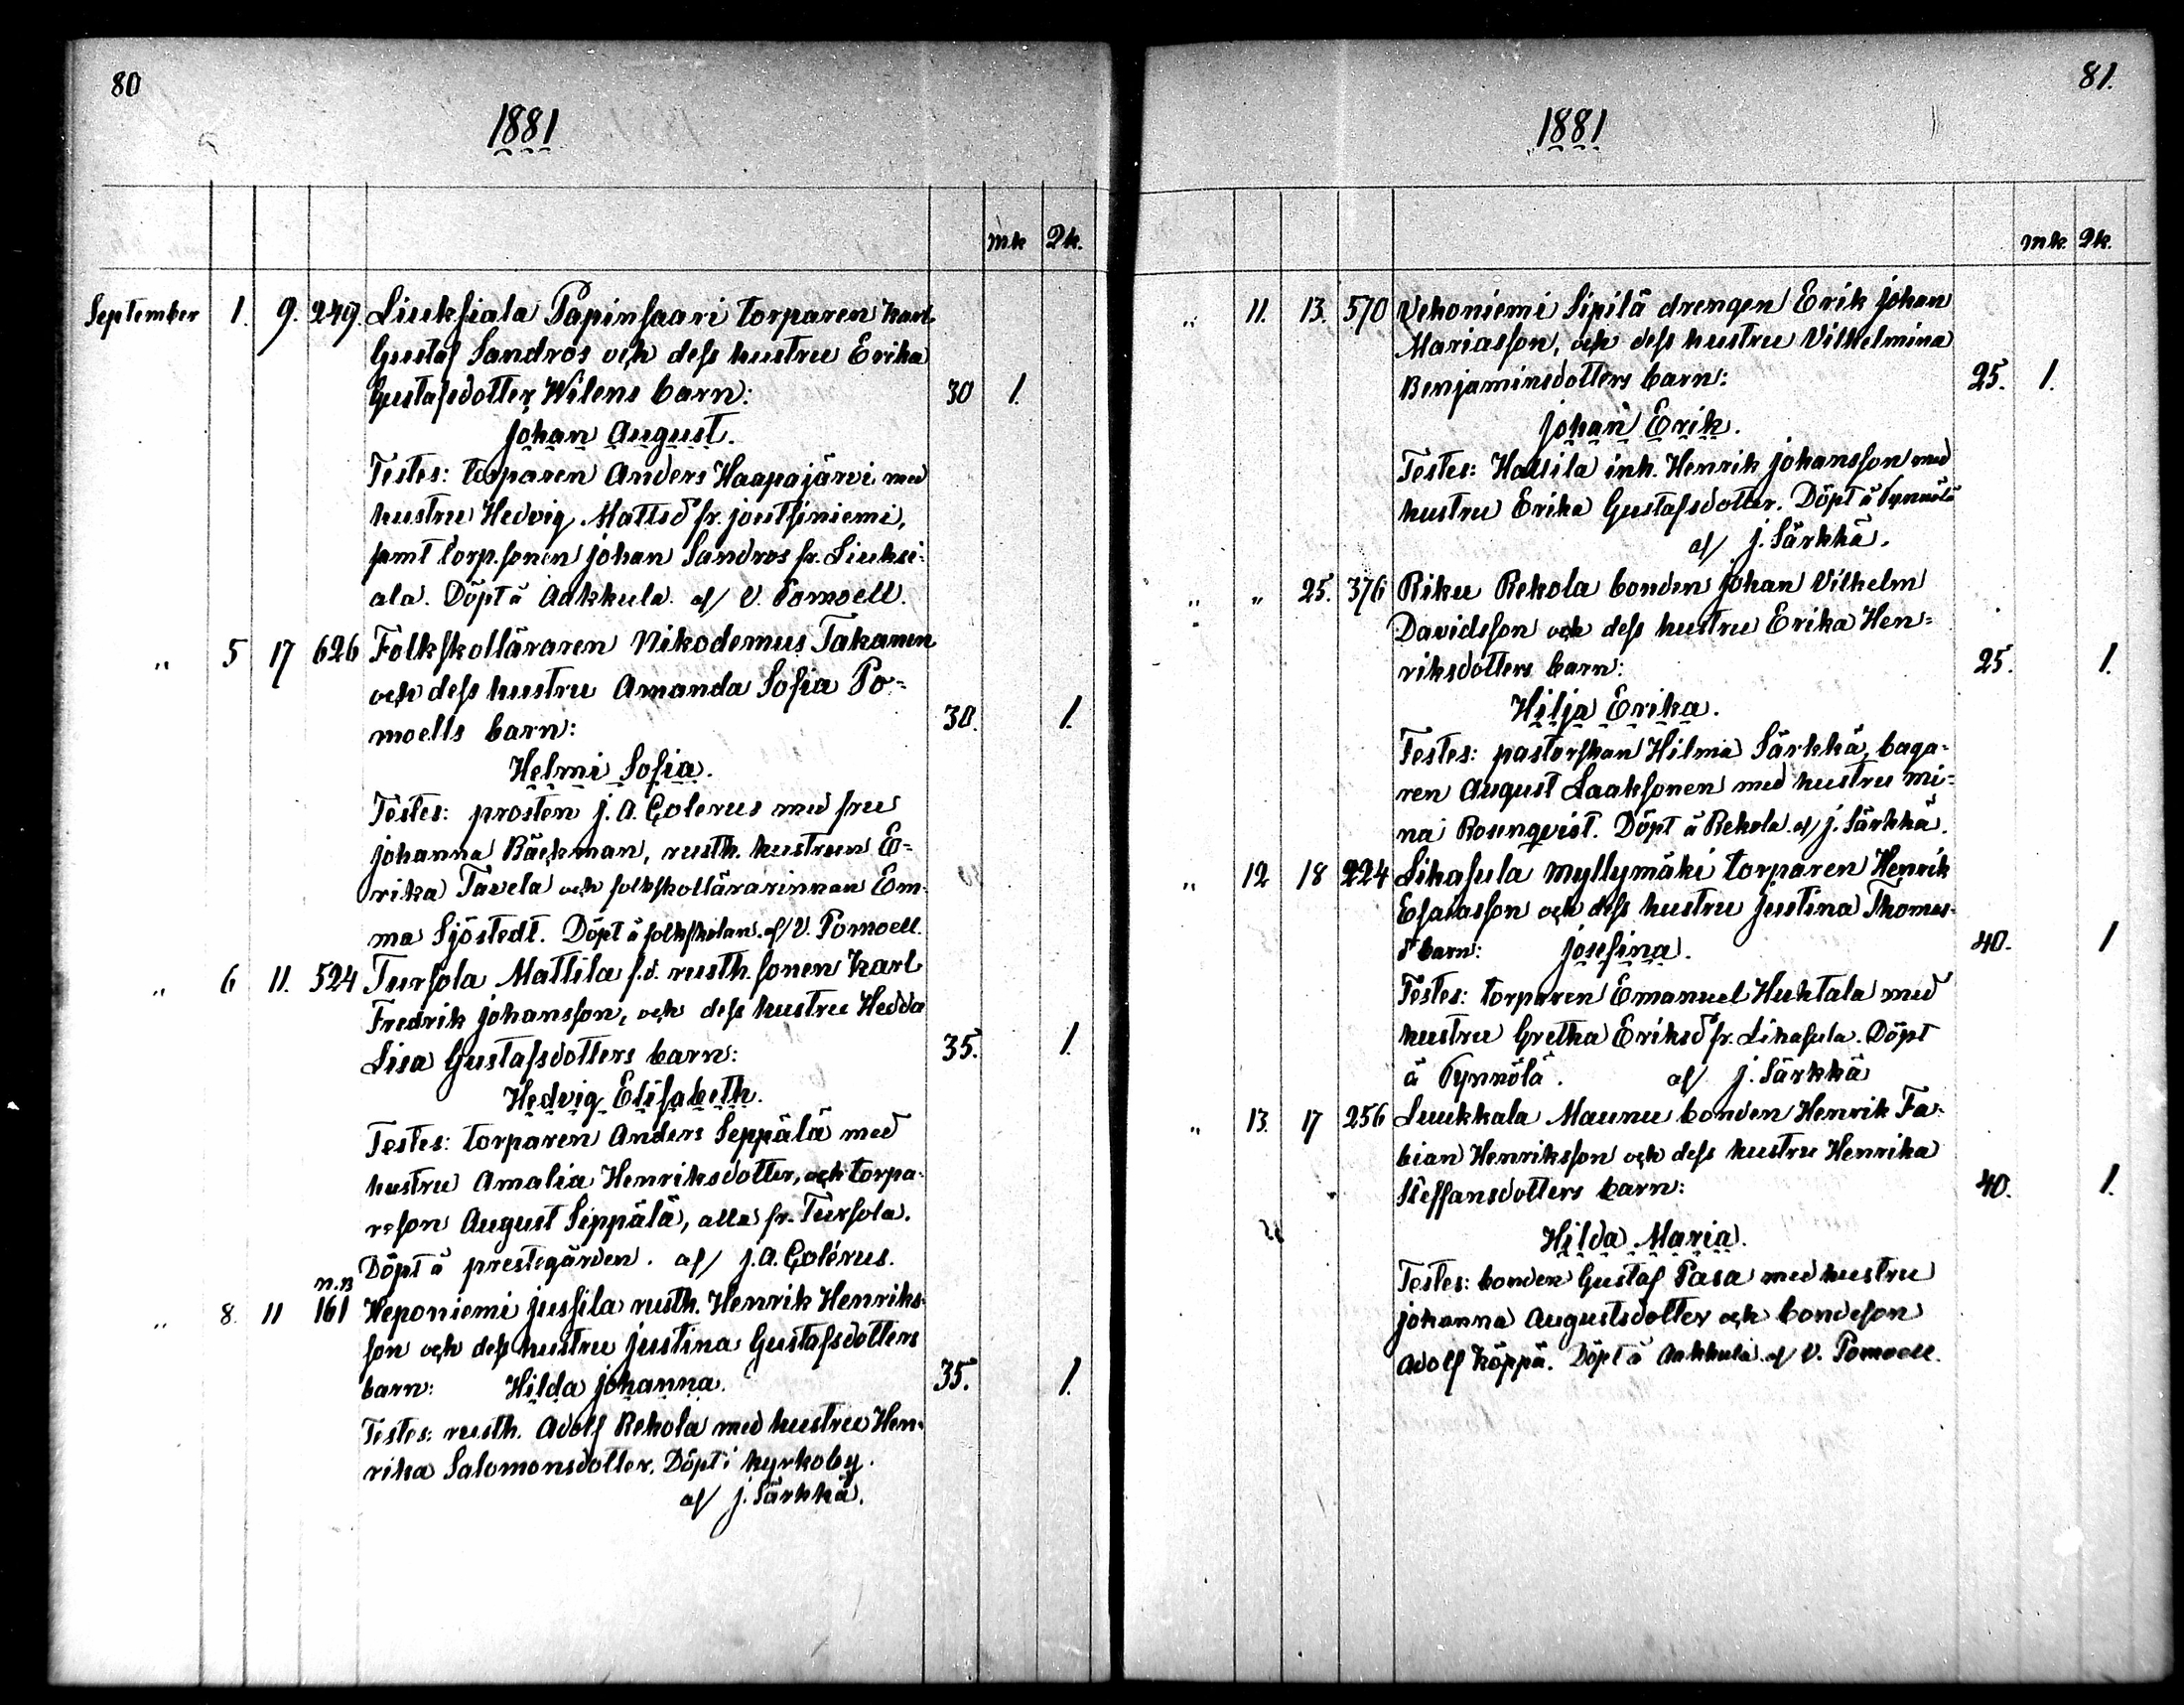 80
1881
mk Qk.
September 1. 9. 249. Liuksiala Papinsaari torparen Karl
Gustaf Sandros och dess hustru Erika
Gustafsdotter Wilens barn: 30 1.
Johan August.
Testes: torparen Anders Haapajärvi med
hustru Hedvig Mattsd:r fr. Joutsiniemi,
samt torp.sonen Johan Sandros fr. Liuksi-
ala. Döpt å Aakkula af V. Pomoell.
" 5 17 626 Folkskolläraren Nikodemus Takanen
och dess hustru Amanda Sofia Po-
moells barn: 30. 1.
Helmi Sofia.
Testes: prosten J. A. Colerus med fru
Johanna Bäckman, rusth. hustrun E-
rika Tavela och folkskollärarinnan Em-
ma Sjöstedt. Döpt å folkskolan. af V. Pomoell.
" 6 11. 524 Tursola Mattila f.d. rusth. sonen Karl
Fredrik Johansson, och dess hustru Hedda
Lisa Gustafsdotters barn: 35. 1.
Hedvig Elisabeth.
Testes: torparen Anders Seppälä med
hustru Amalia Henriksdotter, och torpa-
reson August Seppälä, alla fr. Tursola.
Döpt å prestegården. af J. A. Colérus.
n.B
" 8. 11 161 Heponiemi Jussila rusth. Henrik Henriks-
son och dess hustru Justina Gustafsdotters
barn: Hilda Johanna. 35. 1.
Testes: rusth. Adolf Rekola med hustru Hen-
rika Salomonsdotter. Döpt i kyrkoby.
af J. Särkkä.
81.
1881
mk. Qk.
" 11. 13. 570 Vehoniemi Sipilä drengen Erik Johan
Mariasson, och dess hustru Vilhelmina
Benjaminsdotters barn: 25. 1.
Johan Erik.
Testes: Hassila inh. Henrik Johansson med
hustru Erika Gustafsdotter. Döpt å Tynnölä
af J. Särkkä.
" " 25. 376 Riku Rekola bonden Johan Vilhelm
Davidsson och dess hustru Erika Hen-
riksdotters barn: 25. 1.
Hilja Erika.
Testes: pastorskan Hilma Särkkä, baga-
ren August Laaksonen med hustru Mi-
na Rosenqvist. Döpt å Rekola af J. Särkkä.
" 12 18 224 Lihasula Myllymäki torparen Henrik
Esaiasson och dess hustru Justina Thomas-
d:r barn: Josefina. 40. 1
Testes: torparen Emanuel Huhtala med
hustru Gretha Eriksd:r fr. Lihasula. Döpt
å Tynnölä. af J. Särkkä
" 13. 17 256 Luukkala Maunu bonden Henrik Fa-
bian Henriksson och dess hustru Henrika
Steffansdotters barn: 40. 1.
Hilda Maria.
Testes: bonden Gustaf Pasa med hustru
Johanna Augustsdotter och bondeson
Adolf Köppä. Döpt å Aakkula af V. Pomoell.